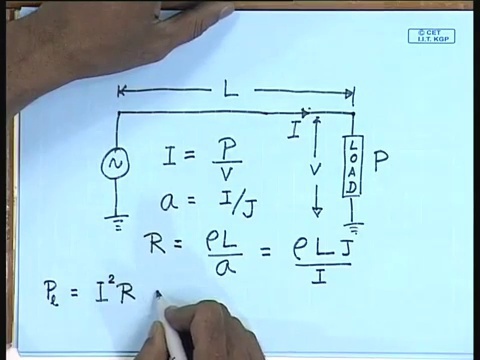 © CET
I.I.T. KGP
L
I
I = P/V
V
LOAD
P
a = I/J
R = ρL/a = ρLJ/I
P_l = I²R